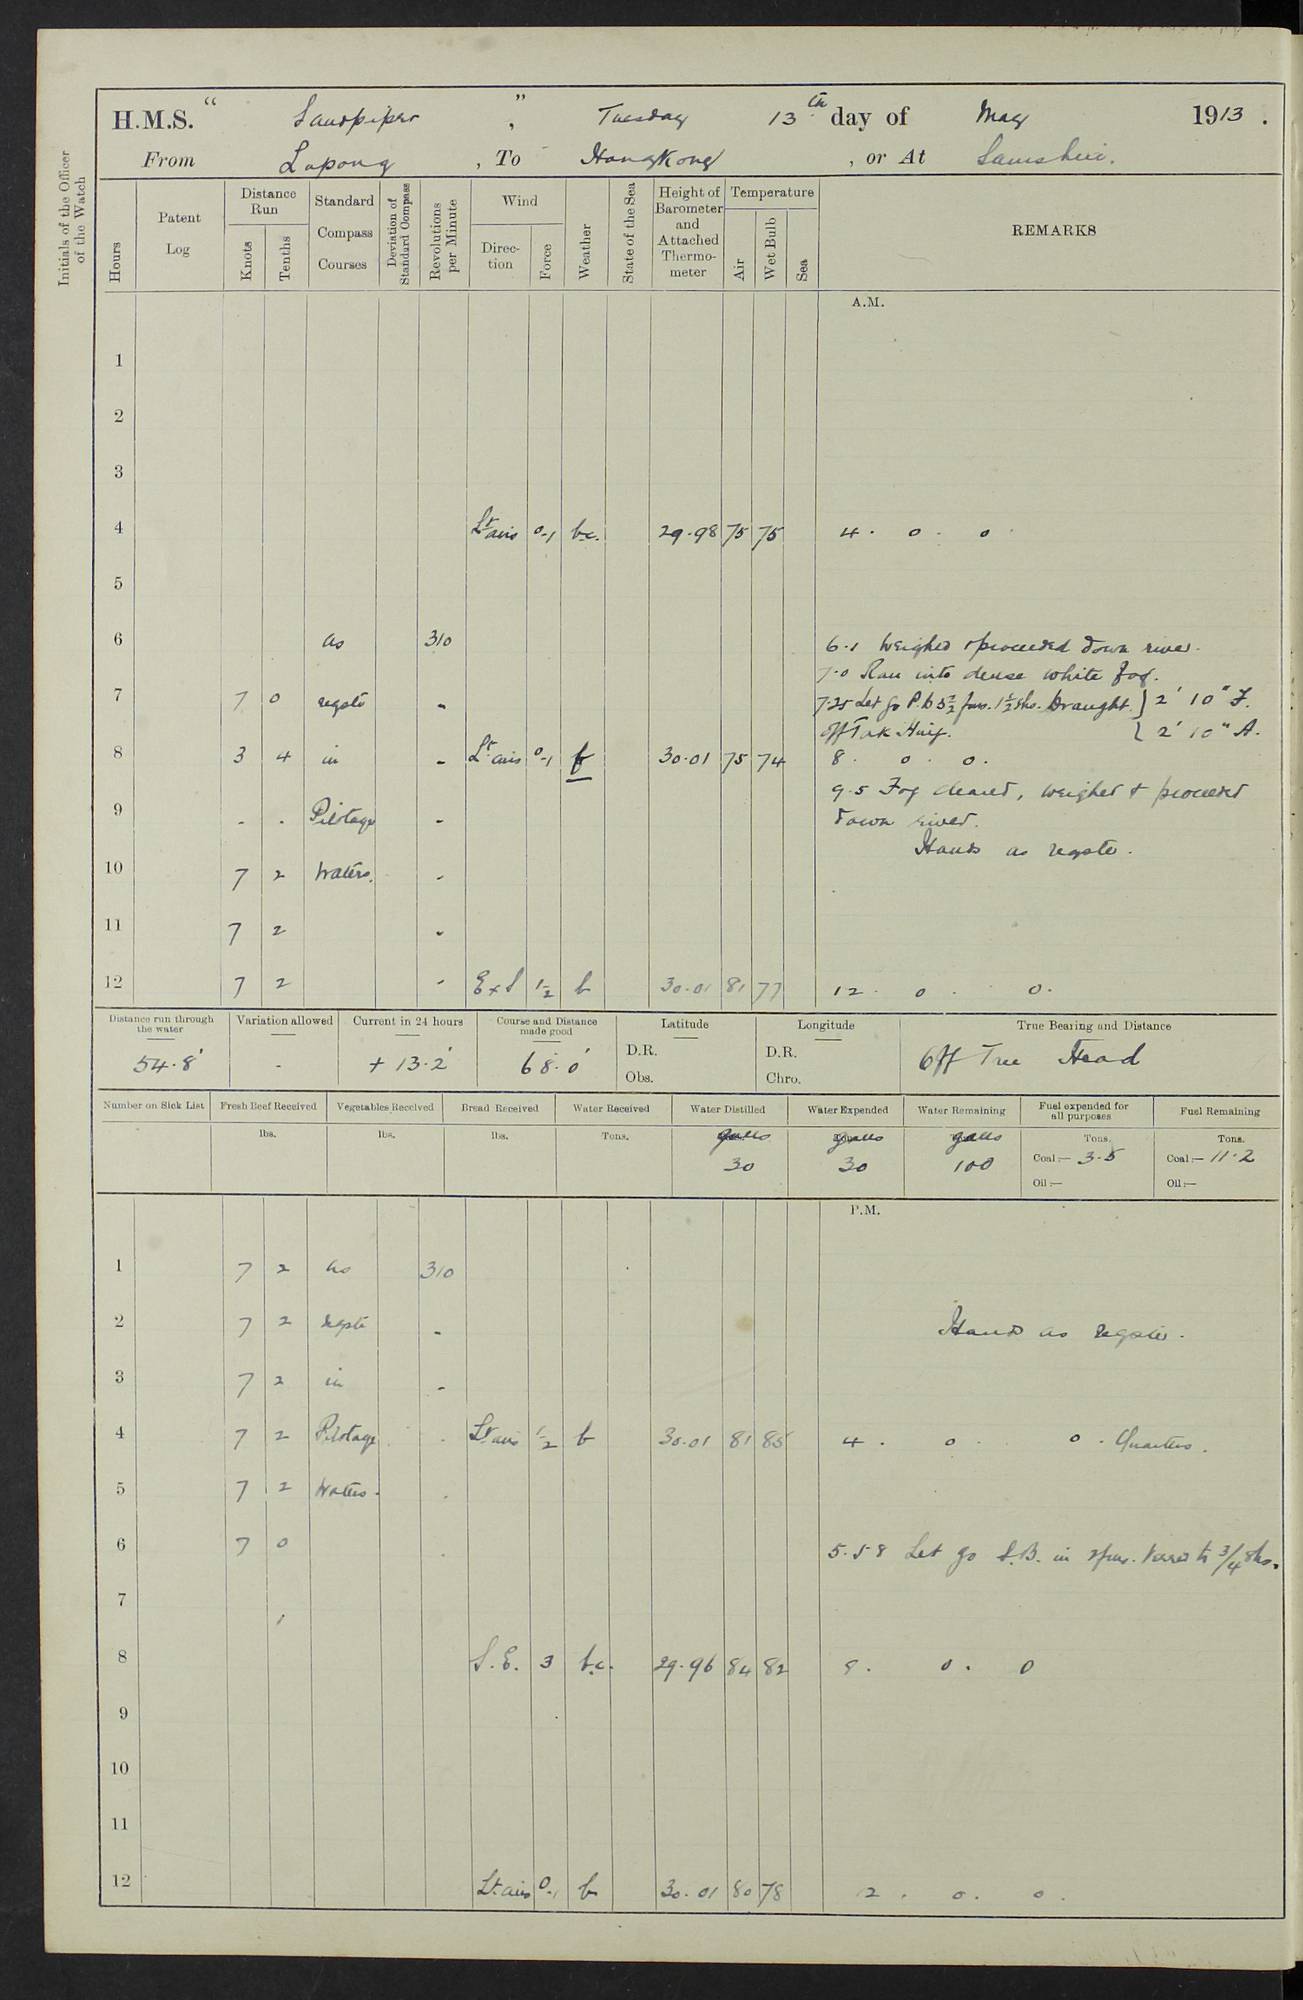 H.M.S. " Sandpiper ", Tuesday 13th day of May 1913.
From Lapong, To Hongkong, or At Samshui.
Initials of the Officer of the Watch
Hours
Patent Log
Distance Run
Knots
Tenths
Standard Compass Courses
Deviation of Standard Compass
Revolutions per Minute
Wind
Direction
Force
Weather
State of the Sea
Height of Barometer and Attached Thermometer
Temperature
Air
Wet Bulb
Sea
REMARKS
A.M.
1
2
3
4 Lt airs 0-1 b.c. 29.98 75 75 4 . 0 . 0
5
6 as 310 6.1 Weighed & proceeded down river.
7.0 Ran into dense white fog.
7 7 0 reqste " 7.25 Let go P.B 5½ fms. 1½ shs. Draught } 2' 10" F.
off Tak Hing. { 2' 10" A.
8 3 4 in " Lt airs 0-1 f 30.01 75 74 8 . 0 . 0 .
9.5 Fog cleared, weighed & proceeded
9 . . Pilotage " down river.
Hands as reqste.
10 7 2 Waters. "
11 7 2 "
12 7 2 " ExS 1/2 b 30.01 81 77 12 . 0 . 0.
Distance run through the water
Variation allowed
Current in 24 hours
Course and Distance made good
Latitude
Longitude
True Bearing and Distance
54.8' - + 13.2' 68.0' D.R. D.R. Off Tree Head
Obs. Chro.
Number on Sick List
Fresh Beef Received
Vegetables Received
Bread Received
Water Received
Water Distilled
Water Expended
Water Remaining
Fuel expended for all purposes
Fuel Remaining
lbs. lbs. lbs. Tons. galls galls galls Tons. Tons.
30 30 100 Coal :— 3.5 Coal :— 11.2
Oil :— Oil :—
P.M.
1 7 2 as 310
2 7 2 reqste " Hands as reqste.
3 7 2 in "
4 7 2 Pilotage . Lt airs 1/2 b 30.01 81 85 4 . 0 . 0 . Quarters.
5 7 2 Waters. .
6 7 0 . 5.58 Let go S.B. in 2 fms. Veered to 3/4 shs.
7
8 S.E. 3 b.c. 29.96 84 82 8 . 0 . 0
9
10
11
12 Lt. airs 0-1 b 30.01 80 78 12 . 0 . 0 .